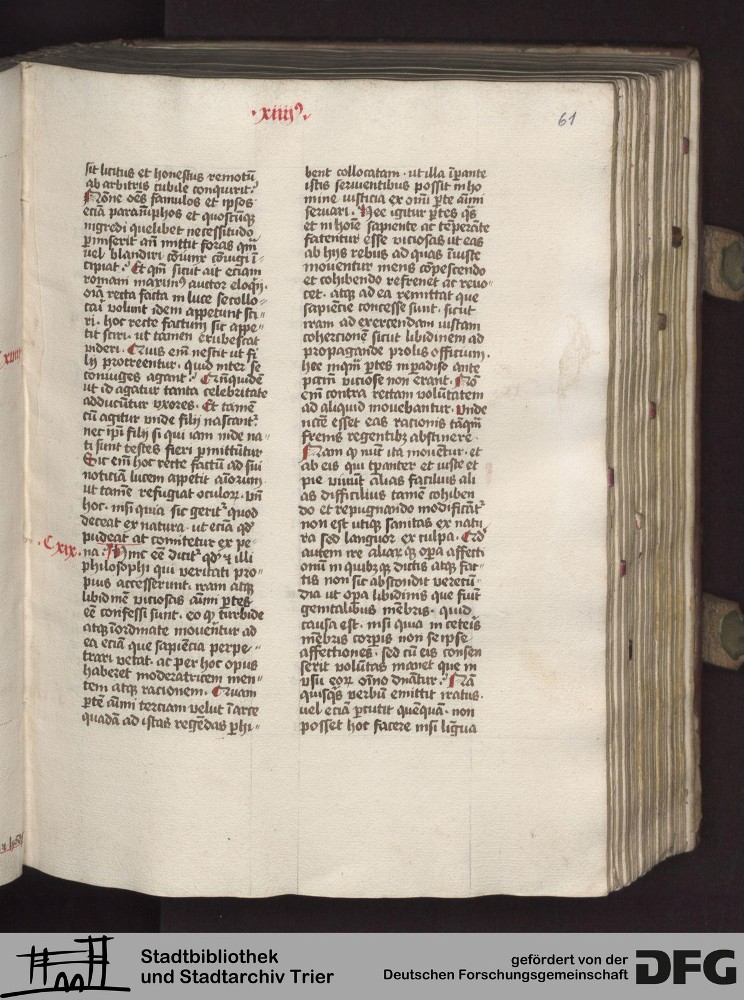 ·xiiij⁹·
61
sit licitus et honestus remotū
ab arbitris cubile conquirit?
Nōne oēs famulos et ipsos
eciā paranīphos et quoscūqꝫ
ingredi quelibet necessitudo
ꝑmiserit an̄ mittit foras qm̄
uel blandiri cōiunx cōiugi ī-
cipiat? Et qm̄ sicut ait eciam
romani maxim⁹ auctor eloqij·
oīa recta facta in luce se collo-
cari volunt idem appetunt sci-
ri· hoc recte factum sic appe-
tit sciri· ut tamen erubescat
videri· Quis em̄ nescit ut fi
lij procreentur· quid inter se
coniuges agant? Cū quidē
ut id agatur tanta celebritate
adducūtur vxores· Et tamē
cū agitur vnde filij nascant᷑
nec ip̄i filij si qui iam inde na-
ti sunt testes fieri ꝑmittūtur
Sic em̄ hoc recte factū ad sui
noticiā lucem appetit aīorum
ut tamē refugiat oculoꝝ· vn̄
hoc· nisi quia sic gerit᷑ quod
deceat ex natura· ut eciā qd̓
pudeat at comitetur ex pe-
· C xix·
na? Hinc ē ꝙ et illi
philosophi qui veritati pro-
pius accesserunt· iram atqꝫ
libidinē viciosas aīmi ꝑtes
eē confessi sunt· eo ꝙ turbide
atqꝫ īordinate mouentur ad
ea eciā que sapiēcia perpe-
trari vetat· ac per hoc opus
haberet moderatricem men-
tem atqꝫ racionem· Quam
ꝑtē aīmi terciam velut ī arce
quadā ad istas regēdas ꝑhi-
bent collocatam· ut illa īꝑante
istis seruientibus possit in ho
mine iusticia ex oīni ꝑte aīmi
seruari· Hee igitur ꝑtes qͣs
et in hoīe sapiente ac tēꝑate
fatentur esse viciosas ut eas
ab hijs rebus ad quas īiuste
mouentur mens cōpescendo
et cohibendo refrenet ac reuo-
cet· atqꝫ ad ea remittat que
sapiēcie concesse sunt· sicut
iram ad exercendam iustam
cohercionem sicut libidinem ad
propagande prolis officium·
hee inqm̄ ꝑtes in paradiso ante
pctm̄ viciose non erant· Nō
em̄ contra rectam volūtatem
ad aliquid mouebantur· vnde
necēe esset eas racionis tāqm̄
frenis regentibꝫ abstinere·
Nam ꝙ nūc ita mouentur· et
ab eis qui tꝑanter et iuste et
pie viuūt alias facilius ali
as difficilius tamē cohiben
do et repugnando modificāt᷑
non est utiqꝫ sanitas ex natu
ra sed languor ex culpa· Qd̓
autem ire aliarqꝫ opa affecti
onū in quibꝫqꝫ dictis atqꝫ fac-
tis non sic abscondit verecū-
dia ut opa libidinis que fiūt
genitalibus mēbris· quid
causa est· nisi quia in ceteris
mēbris corꝑis non se ipse
affectiones· sed cū eis consen
serit volūtas mouet que in
vsu eoꝝ oīno dn̄atur? Nā
quisqꝫ verbū emittit iratus·
uel eciā ꝑcutit quēquā· non
posset hoc facere nisi ligua
Stadtbibliothek
und Stadtarchiv Trier
gefördert von der
Deutschen Forschungsgemeinschaft
DFG